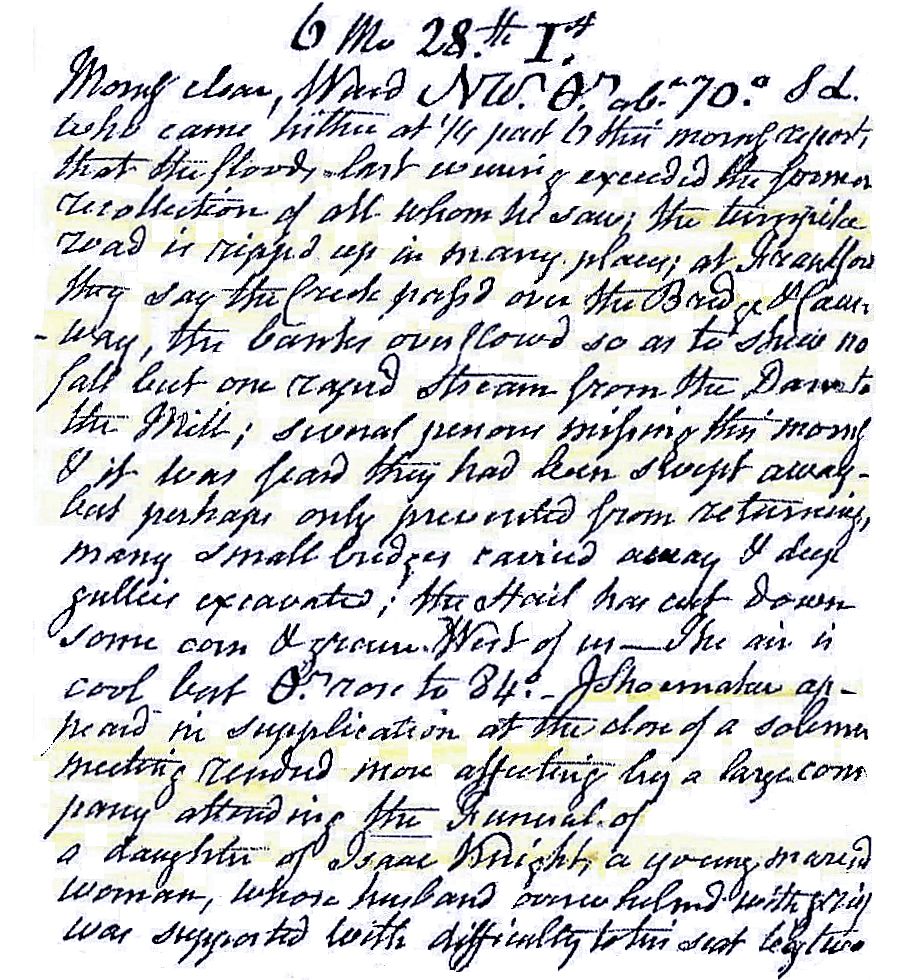 6 Mo 28.th I.st
Morng clear, Ward NW. θ.r ab.t 70.° S d.
who came hither at 1/4 past 6 this morng reports
that the floods last evening exceeded the former
recollection of all whom he saw; the turnpike
road is rippd up in many places; at Frankford
they say the Creek passd over the Bridge & Cause
-way, the banks overflowd so as to shew no
fall but one rapid stream from the Dam to
the Mill; several persons missing this morng
& it was feard they had been swept away-
but perhaps only prevented from returning,
many small bridges carried away & deep
gullies excavated; the Hail has cut down
some corn & grain West of us — The air is
cool but θ.r rose to 84°- J Shoemaker ap-
peard in supplication at the close of a solemn
meeting rendred more affecting by a large com
pany attending the Funeral of
a daughter of Isaac Knight, a young married
woman, whose husband overwhelmd with grief
was supported with difficulty to his seat by two